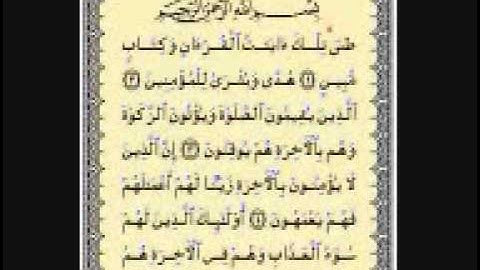 بِسْمِ ٱللَّهِ ٱلرَّحْمَٰنِ ٱلرَّحِيمِ
طسٓ تِلْكَ ءَايَٰتُ ٱلْقُرْءَانِ وَكِتَابٍ
مُّبِينٍ ١ هُدًى وَبُشْرَىٰ لِلْمُؤْمِنِينَ ٢
ٱلَّذِينَ يُقِيمُونَ ٱلصَّلَوٰةَ وَيُؤْتُونَ ٱلزَّكَوٰةَ
وَهُم بِٱلْأَخِرَةِ هُمْ يُوقِنُونَ ٣ إِنَّ ٱلَّذِينَ
لَا يُؤْمِنُونَ بِٱلْأَخِرَةِ زَيَّنَّا لَهُمْ أَعْمَٰلَهُمْ
فَهُمْ يَعْمَهُونَ ٤ أُو۟لَٰٓئِكَ ٱلَّذِينَ لَهُمْ
سُوٓءُ ٱلْعَذَابِ وَهُمْ فِى ٱلْأَخِرَةِ هُمُ